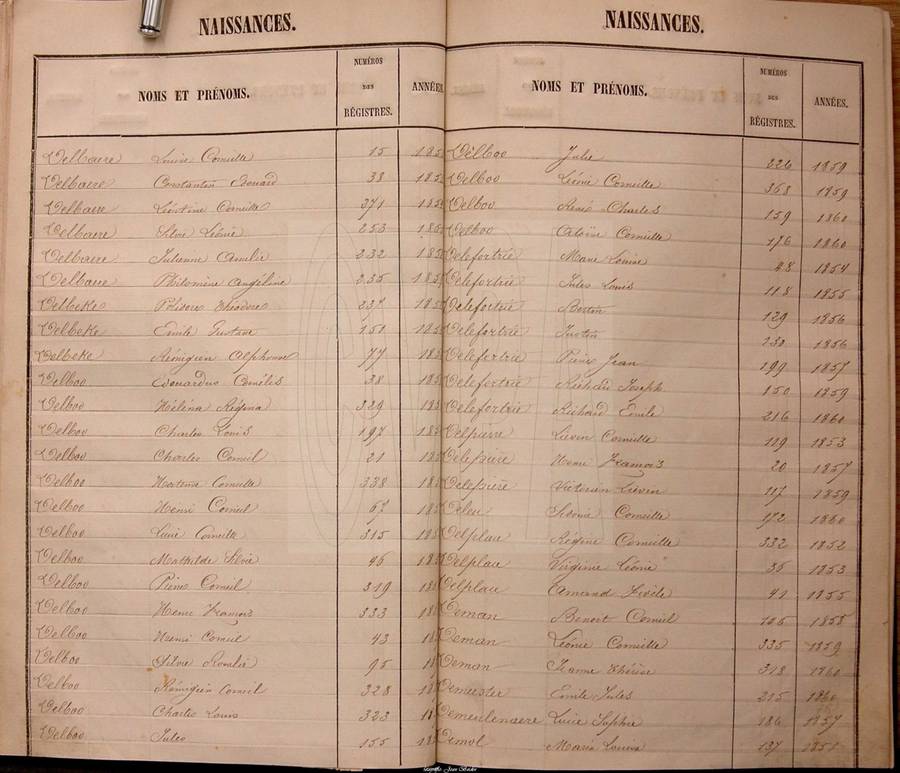 NAISSANCES.
NOMS ET PRÉNOMS. NUMÉROS DES RÉGISTRES. ANNÉES
Delbaere Louise Corneille 15 185
Delbaere Constantin Edouard 38 185
Delbaere Léontine Corneille 271 185
Delbaere Silvie Léonie 253 185
Delbaere Julienne Amelie 232 185
Delbaere Philomène Angéline 235 185
Delbeke Polidore Théodore 237 185
Delbeke Emile Gustave 151 185
Delbeke Rémigien Alphonse 77 185
Delboo Edouardus Cornélis 38 185
Delboo Héléna Régina 329 185
Delboo Charles Louis 197 185
Delboo Charles Corneil 21 185
Delboo Hortense Corneille 338 185
Delboo Henri Corneil 67 185
Delboo Lucie Corneille 315 185
Delboo Mathilde Silvie 46 185
Delboo Pierre Corneil 319 18
Delboo Henri Framois 333 18
Delboo Henri Corneil 43 18
Delboo Silvie Rosalie 95 18
Delboo Rémigien Corneil 328 18
Delboo Charles Louis 323 18
Delboo Jules 155 18
NAISSANCES.
NOMS ET PRÉNOMS. NUMÉROS DES RÉGISTRES. ANNÉES.
Delboo Julie 226 1859
Delboo Léonie Corneille 368 1859
Delboo René Charles 159 1860
Delboo Aloïse Corneille 176 1860
Delefortrie Marie Louise 48 1854
Delefortrie Jules Louis 118 1855
Delefortrie Bertin 129 1856
Delefortrie Justin 230 1856
Delefortrie Pierre Jean 199 1857
Delefortrie Richard Joseph 150 1859
Delefortrie Richard Emile 216 1860
Delepierre Liévin Corneille 119 1853
Delepière Henri Framois 20 1857
Delepière Victorien Lievin 117 1859
Deleu Corneille 172 1860
Delplau Régine Corneille 332 1852
Delplau Virginie Léonie 35 1853
Delplau Armand Fidèle 41 1855
Deman Benoit Corneil 1858
Deman Léonie Corneille 335 1859
Deman Jeanne Thérèse 318 1860
Demeester Emile Jules 215 1860
Demeulenaere Lucie Sophie 186 1857
Demol Marie Louise 137 1851